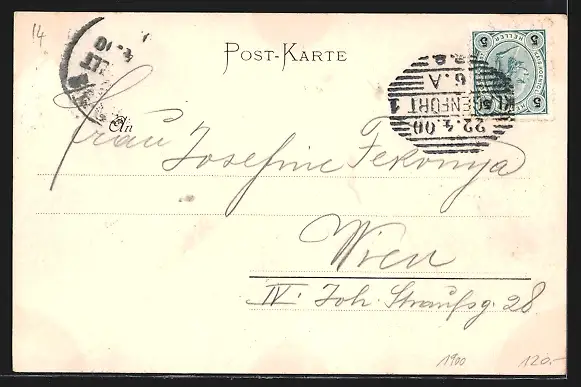 14
POST-KARTE
5 HELLER 5
5 5
KLAGENFURT 1
22.4.00
6.A
An
Frau Josefine Fekonya
Wien
IV. Joh. Straußg. 28
1900
120.-